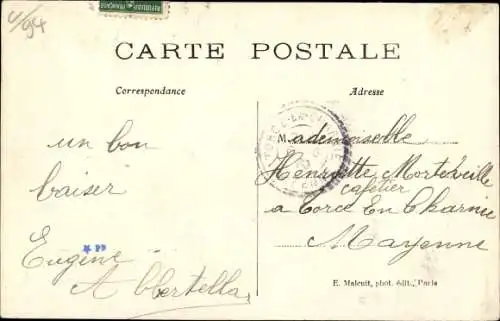 4/94
CARTE POSTALE
Correspondance
Adresse
un bon
baiser
Eugène
A
Mademoiselle
Henriette Morteveille
cafetier
a Torcé En Charnie
Mayenne
E. Malcuit, phot. édit., Paris